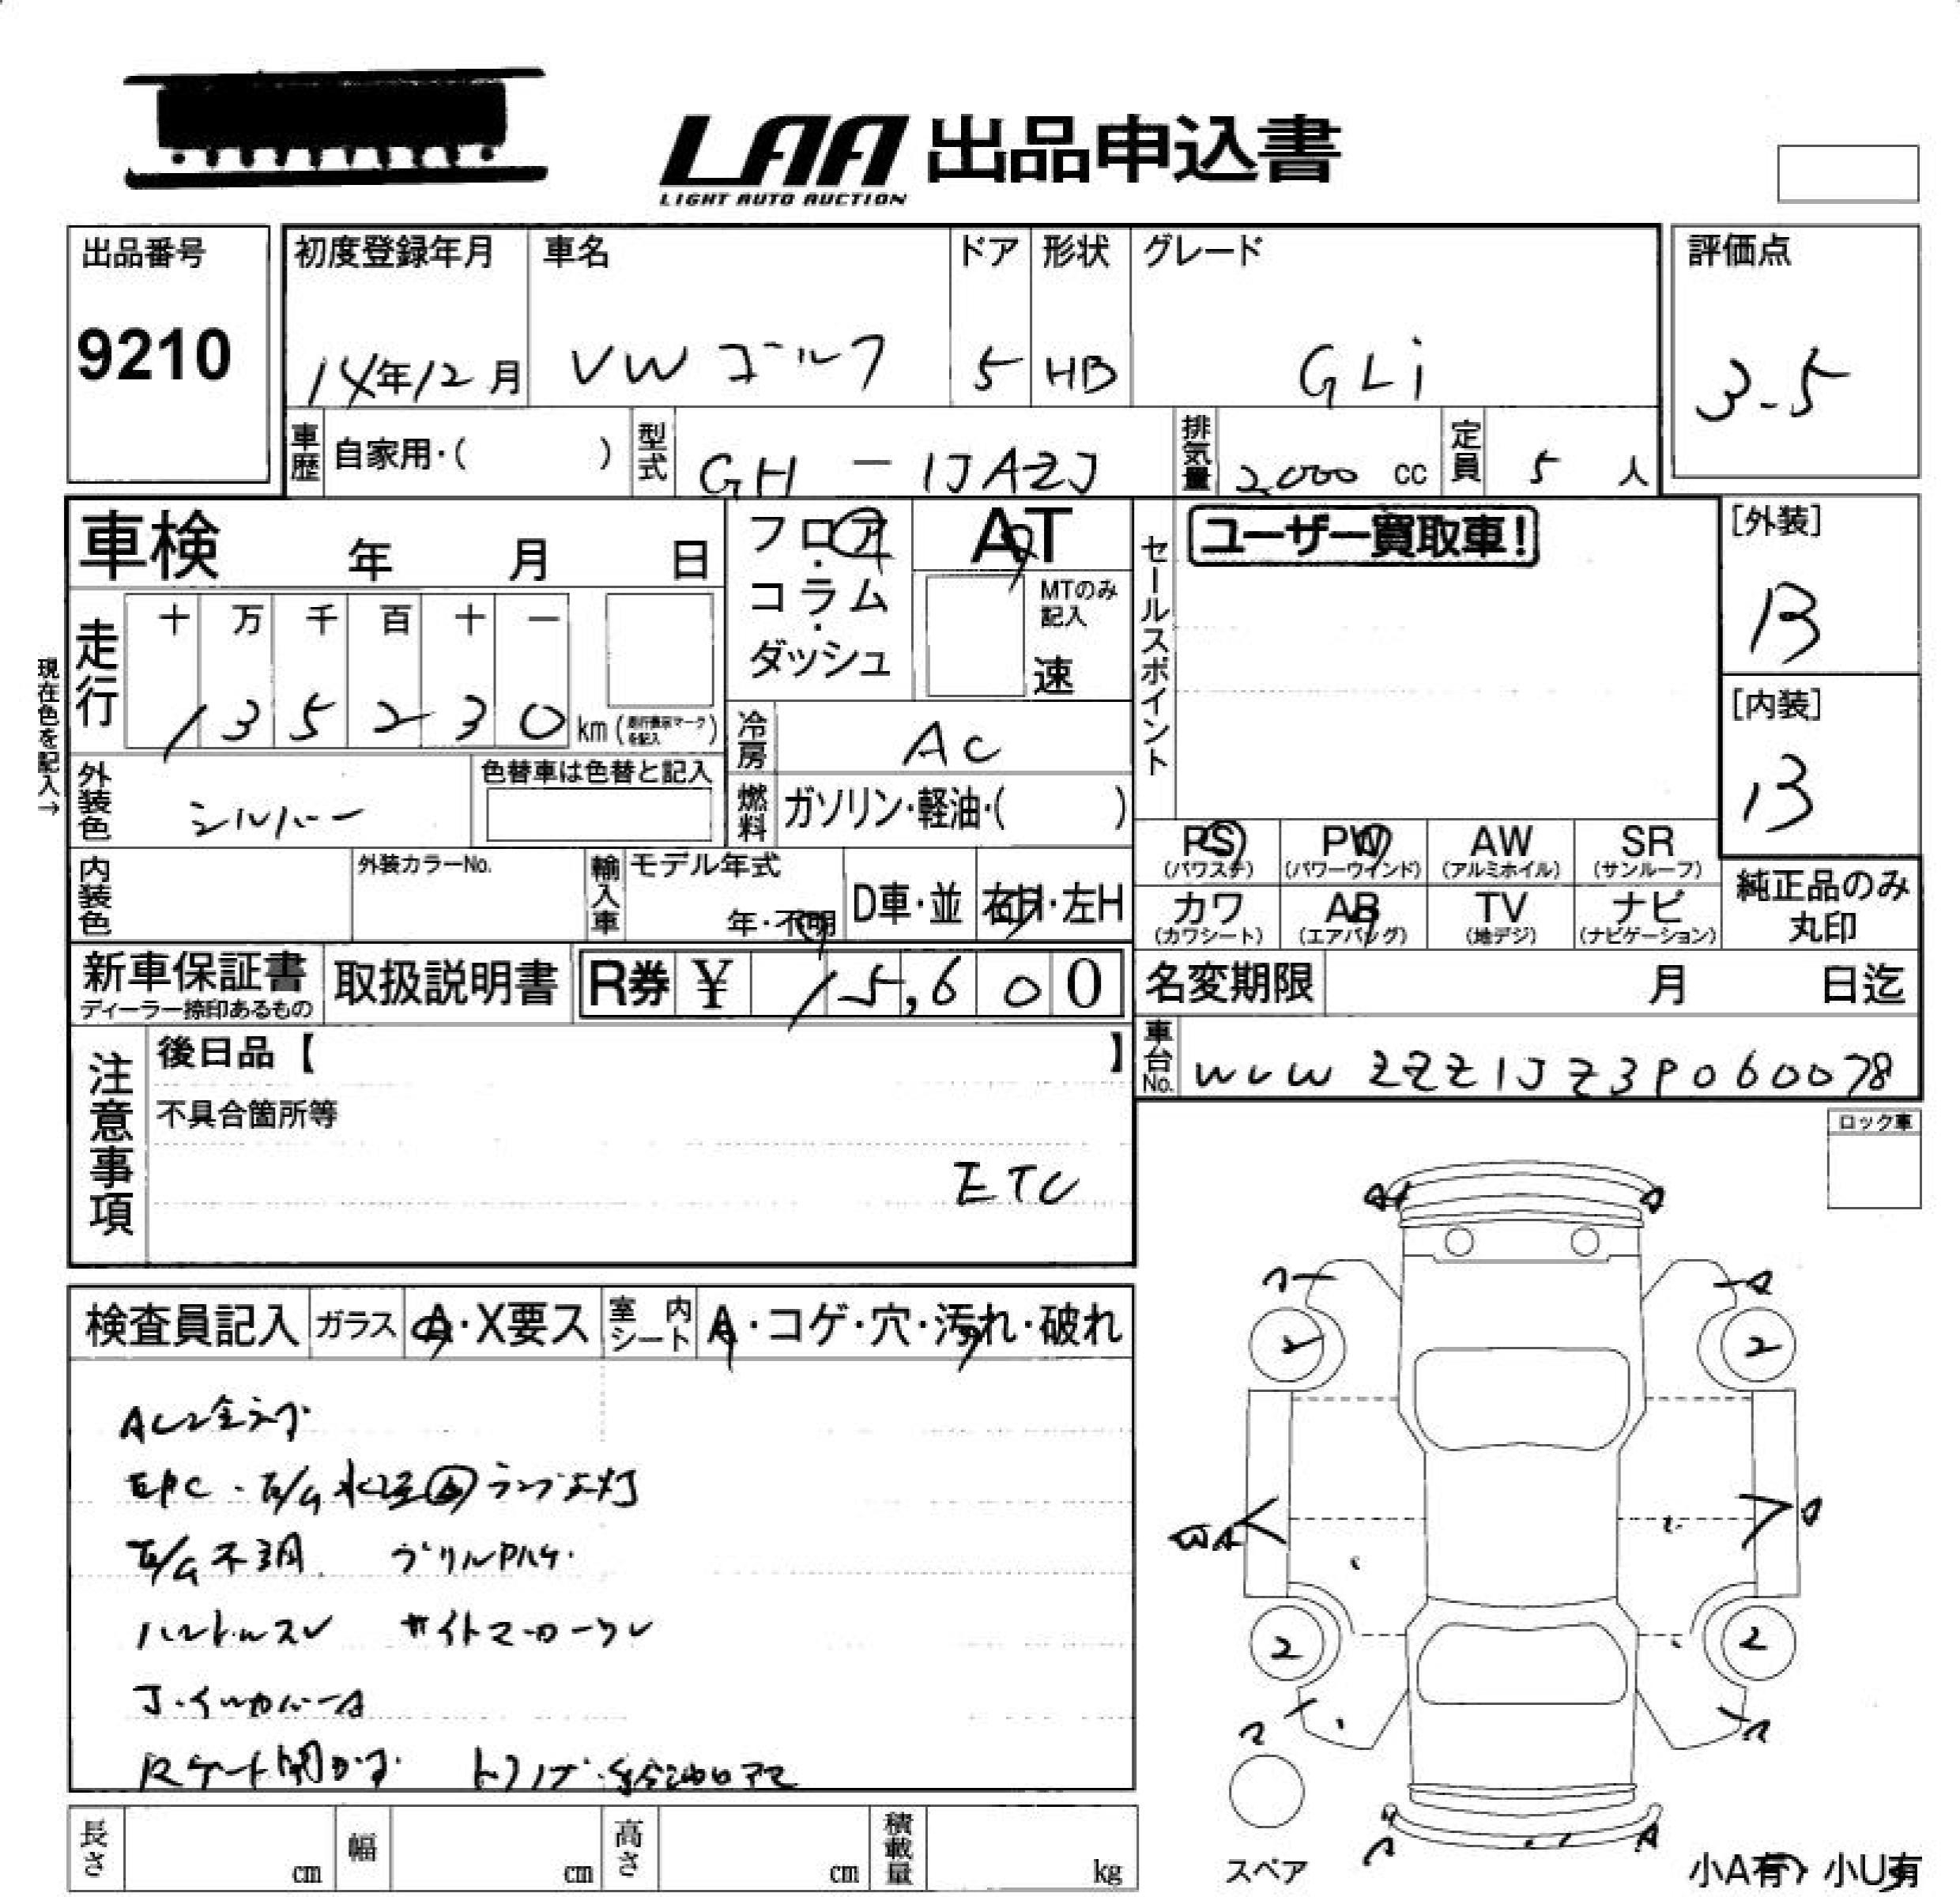 LAA 出品申込書
LIGHT AUTO AUCTION
出品番号
9210
初度登録年月 車名 ドア 形状 グレード
14年12月 VW ゴルフ 5 HB GLi
評価点
3.5
車歴 自家用・( ) 型式 GH-1JAZJ 排気量 2000 cc 定員 5 人
車検 年 月 日
フロア・コラム・ダッシュ
AT
MTのみ記入
速
セールスポイント
ユーザー買取車!
[外装]
B
[内装]
B
現在色を記入→
走行 十 万 千 百 十 一
1 3 5 2 3 0 km (走行表示マークを記入)
冷房 AC
外装色 シルバー
色替車は色替と記入
燃料 ガソリン・軽油・( )
PS (パワステ) PW (パワーウインド) AW (アルミホイル) SR (サンルーフ)
カワ (カワシート) AB (エアバッグ) TV (地デジ) ナビ (ナビゲーション)
純正品のみ丸印
内装色 外装カラーNo. 輸入車 モデル年式 年・不明 D車・並 右H・左H
新車保証書 ディーラー捺印あるもの
取扱説明書
R券 ¥ 15,600
名変期限 月 日迄
車台No. WVWZZZ1JZ3P060078
注意事項
後日品【 】
不具合箇所等
ETC
ロック車
検査員記入 ガラス A・X要ス 室内シート A・コゲ・穴・汚れ・破れ
EPC・E/G水温 ランプ点灯
E/G不調
Rゲート開かず
A A
A
2 2
A
2 2
A
スペア
小A有 小U有
長さ cm 幅 cm 高さ cm 積載量 kg